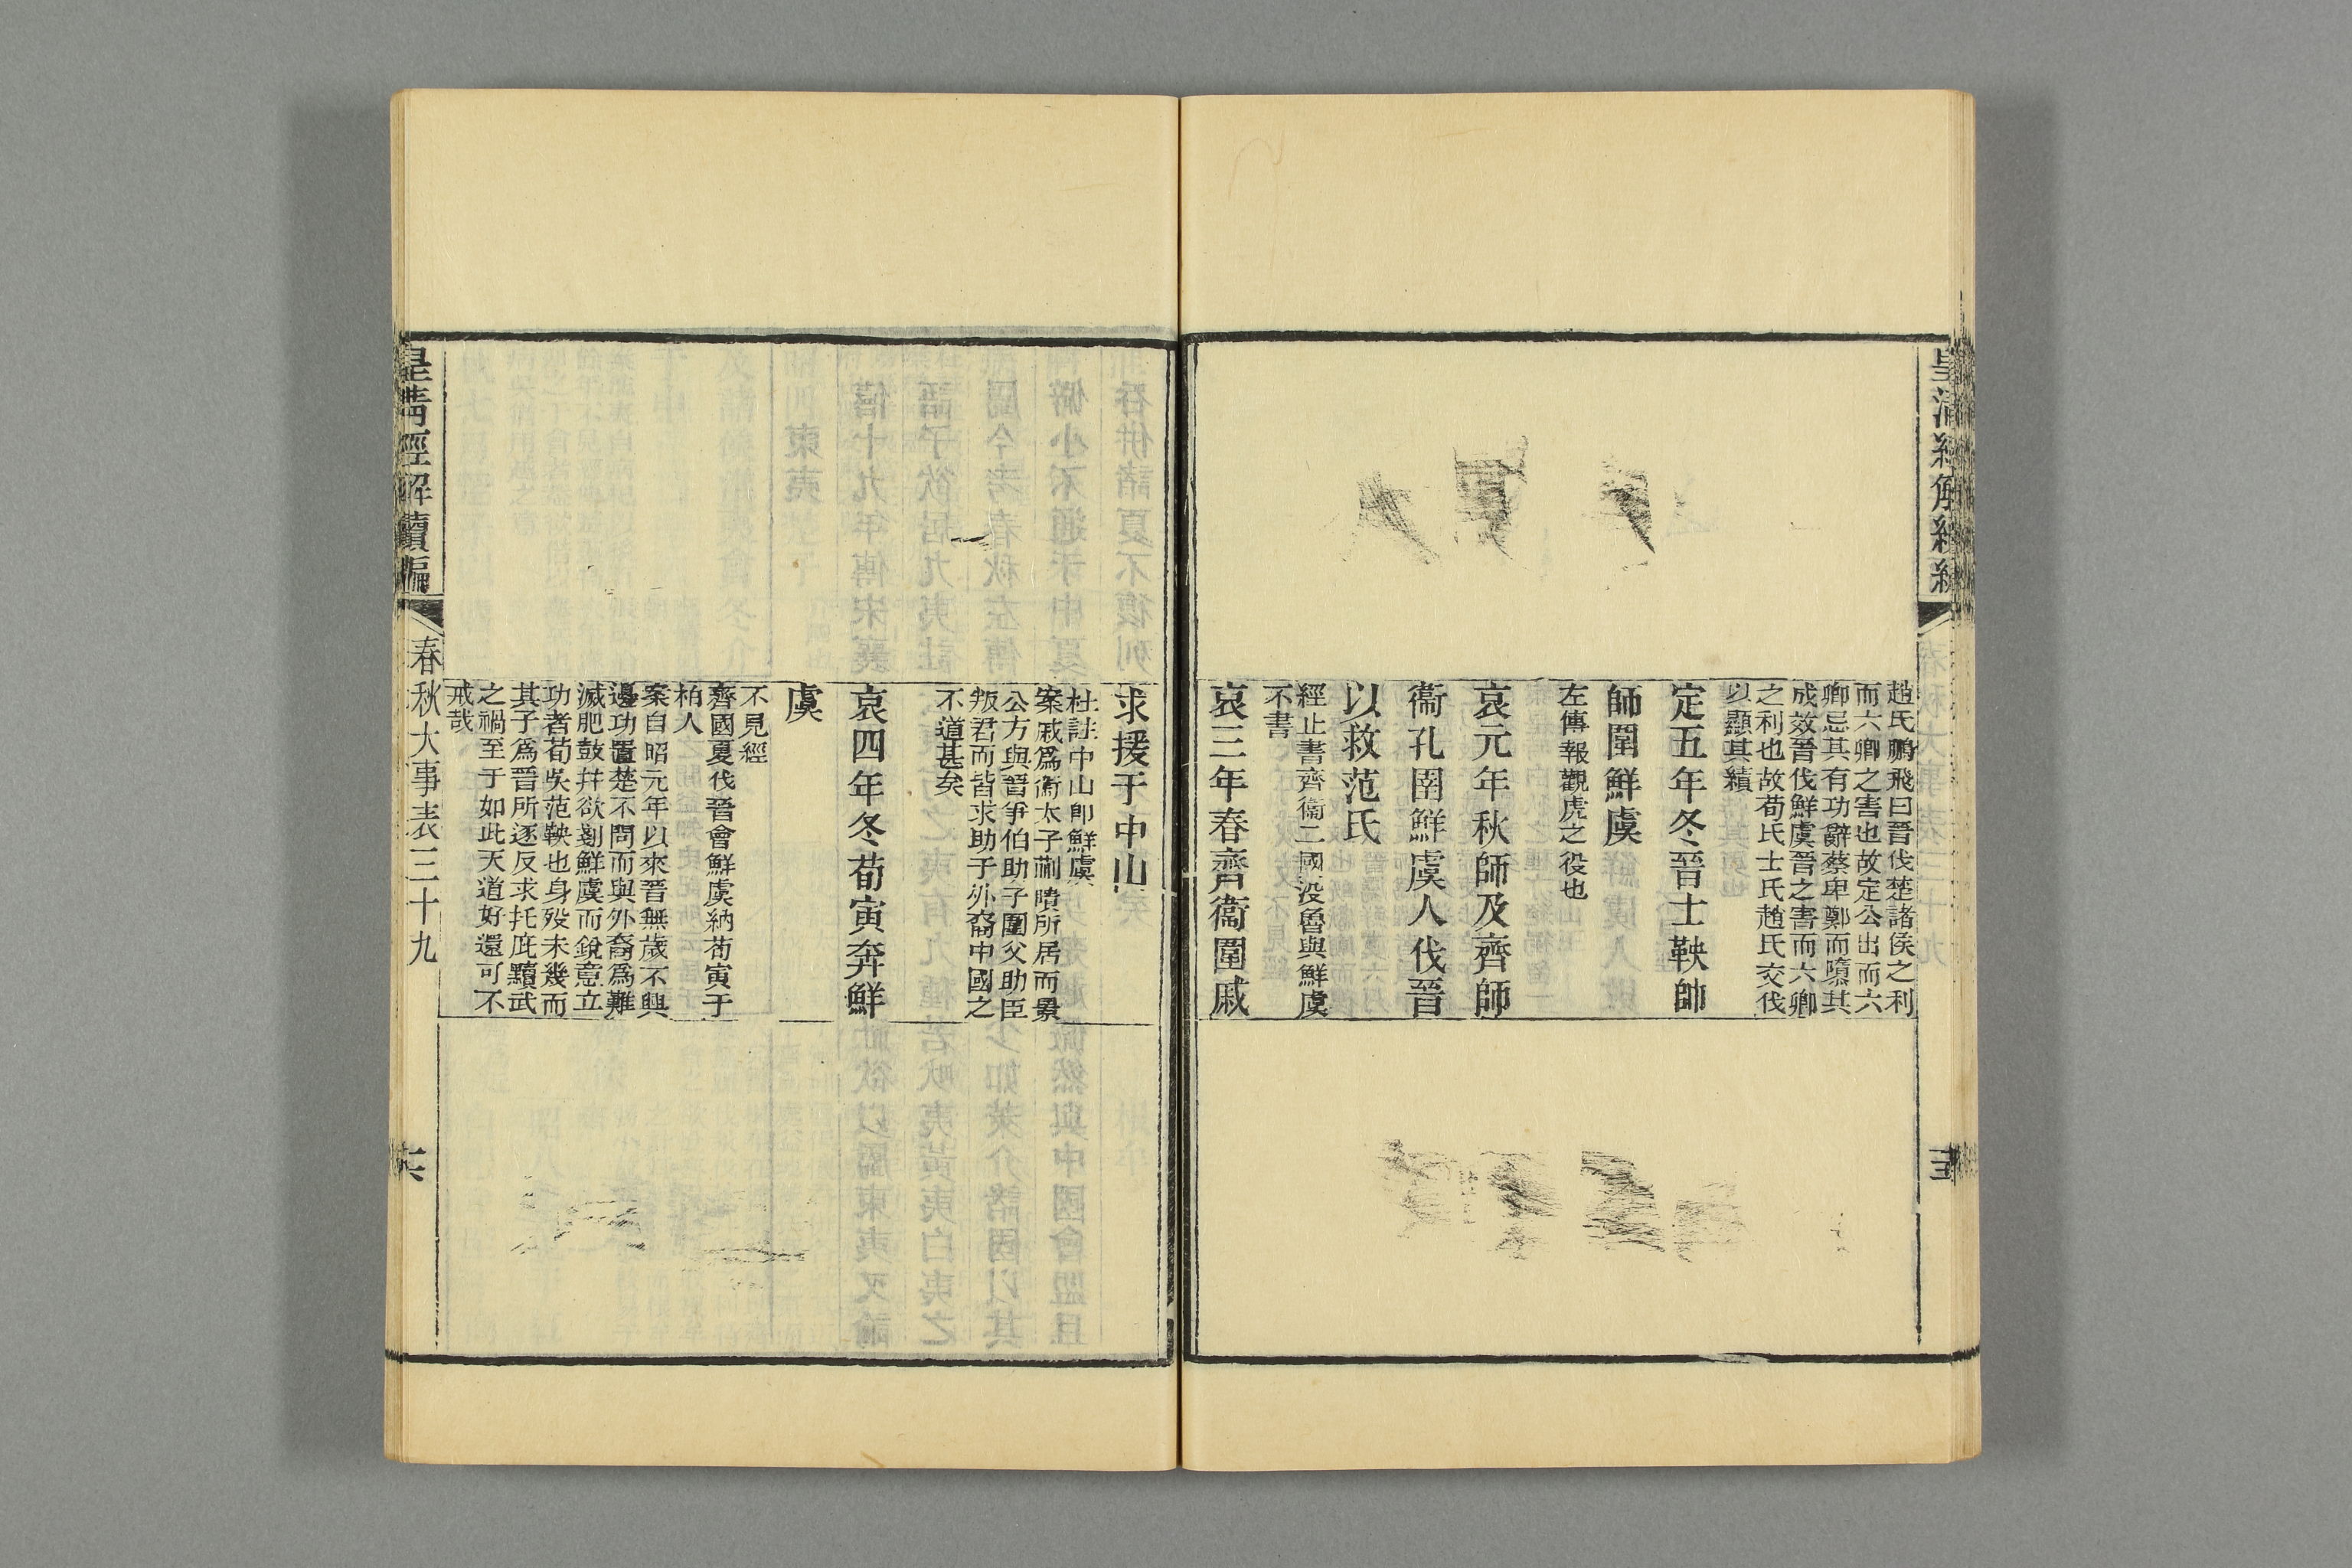 趙氏鵬飛曰晉伐楚諸侯之利
而六卿之害也故定公出而六
卿忌其有功辭蔡卑鄭而隳其
成效晉伐鮮虞晉之害而六卿
之利也故荀氏士氏趙氏交伐
以顯其績
定五年冬晉士鞅帥
師圍鮮虞
左傳報觀虎之役也
哀元年秋師及齊師
衞孔圉鮮虞人伐晉
以救范氏
經止書齊衞二國沒魯與鮮虞
不書
哀三年春齊衞圍戚
求援于中山
杜註中山卽鮮虞
案戚爲衞太子蒯聵所居而景
公方與晉爭伯助子圍父助臣
叛君而皆求助于外裔中國之
不道甚矣
哀四年冬荀寅奔鮮
虞
不見經
齊國夏伐晉會鮮虞納荀寅于
柏人
案自昭元年以來晉無歲不興
邊功置楚不問而與外裔爲難
滅肥鼓幷欲剗鮮虞而銳意立
功者荀吳范鞅也身歿未幾而
其子爲晉所逐反求托庇黷武
之禍至于如此天道好還可不
戒哉
皇清經解續編
春秋大事表三十九